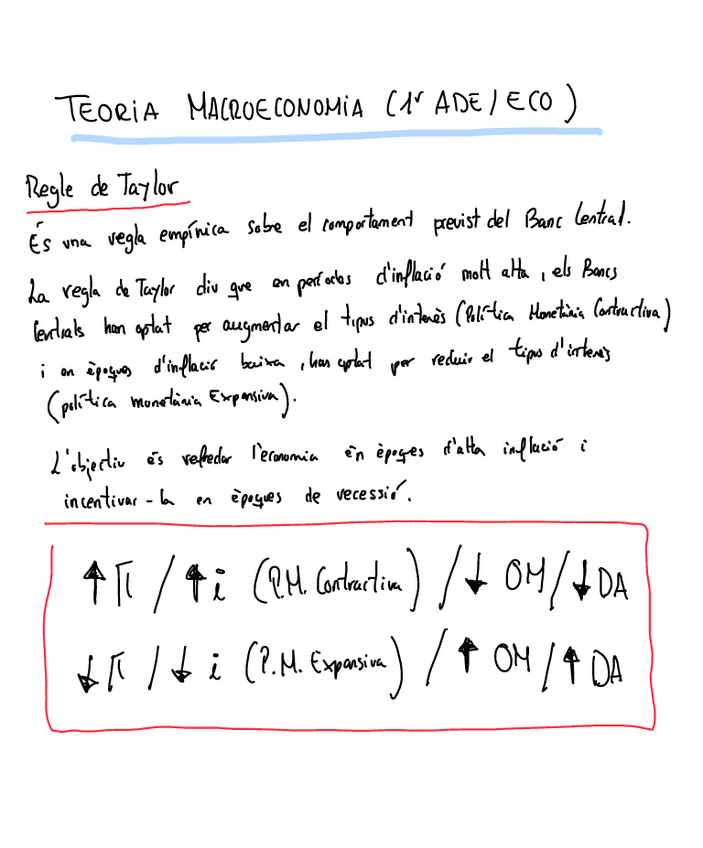 TEORIA MACROECONOMIA (1r ADE/ECO)
Regle de Taylor
És una regla empírica sobre el comportament previst del Banc Central.
La regla de Taylor diu que en períodes d'inflació molt alta, els Bancs
Centrals han optat per augmentar el tipus d'interès (Política Monetària Contractiva)
i en èpoques d'inflació baixa, han optat per reduir el tipus d'interès
(política monetària Expansiva).
L'objectiu és refredar l'economia en èpoques d'alta inflació i
incentivar-la en èpoques de recessió.
↑π / ↑i (P.M. Contractiva) / ↓ OM / ↓ DA
↓π / ↓ i (P.M. Expansiva) / ↑ OM / ↑ DA